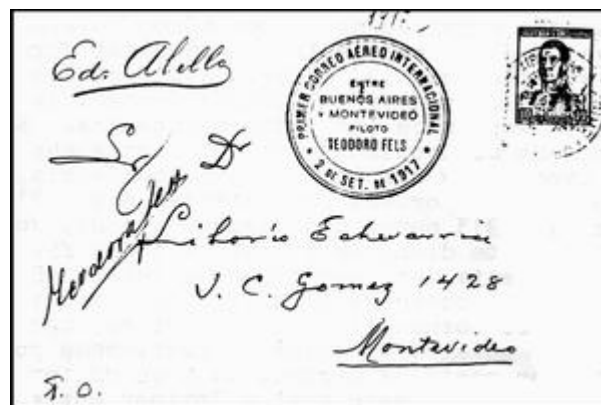 Ed. Alella
PRIMER CORREO AÉREO INTERNACIONAL
ENTRE
BUENOS AIRES
Y MONTEVIDEO
PILOTO
TEODORO FELS
2 DE SET. DE 1917
Sr Dr
Teodoro Fels
Liborio Echevarria
J. C. Gomez 1428
Montevideo